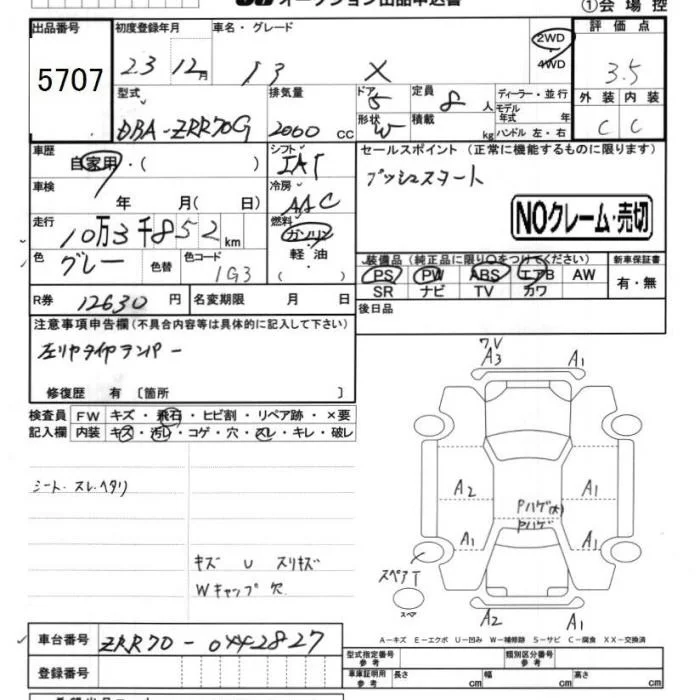 オークション出品申込書 ①会場控
出品番号 初度登録年月 車名・グレード 2WD 4WD 評価点
5707 23 12月 X 3.5
型式 排気量 ドア 5 定員 8人 ディーラー・並行 外装 内装
DBA-ZRR70G 2000cc 形状 W 積載 kg モデル年式 年 ハンドル 左・右 C C
車歴 自家用・( ) シフト IAT セールスポイント(正常に機能するものに限ります)
車検 年 月( 日) 冷房 AAC プッシュスタート
走行 10万3千852km 燃料 ガソリン 軽油・( ) NOクレーム・売切
色 グレー 色替 色コード 1G3 装備品(純正品に限り○をつけてください) 新車保証書
PS PW ABS エアB AW 有・無
SR ナビ TV カワ
R券 12630円 名変期限 月 日 後日品
注意事項申告欄(不具合内容等は具体的に記入して下さい)
左リヤタイヤ
修復歴 有 〔箇所 〕
検査員 FW キズ・飛石・ヒビ割・リペア跡・×要
記入欄 内装 キズ・汚レ・コゲ・穴・スレ・キレ・破レ
シート・スレ、ヘタリ
キズ U スリキズ
Wキャップ欠
ワレ
A3 A1
A2 A1
Pハゲ(大)
Pハゲ
A1 A1
スペアT
スペア
A2 A1
A-キズ E-エクボ U-凹み W-補修跡 S-サビ C-腐食 XX-交換済
車台番号 ZRR70-0442827
型式指定番号 参考 類別区分番号 参考
登録番号 車庫証明用 参考 長さ cm 幅 cm 高さ cm